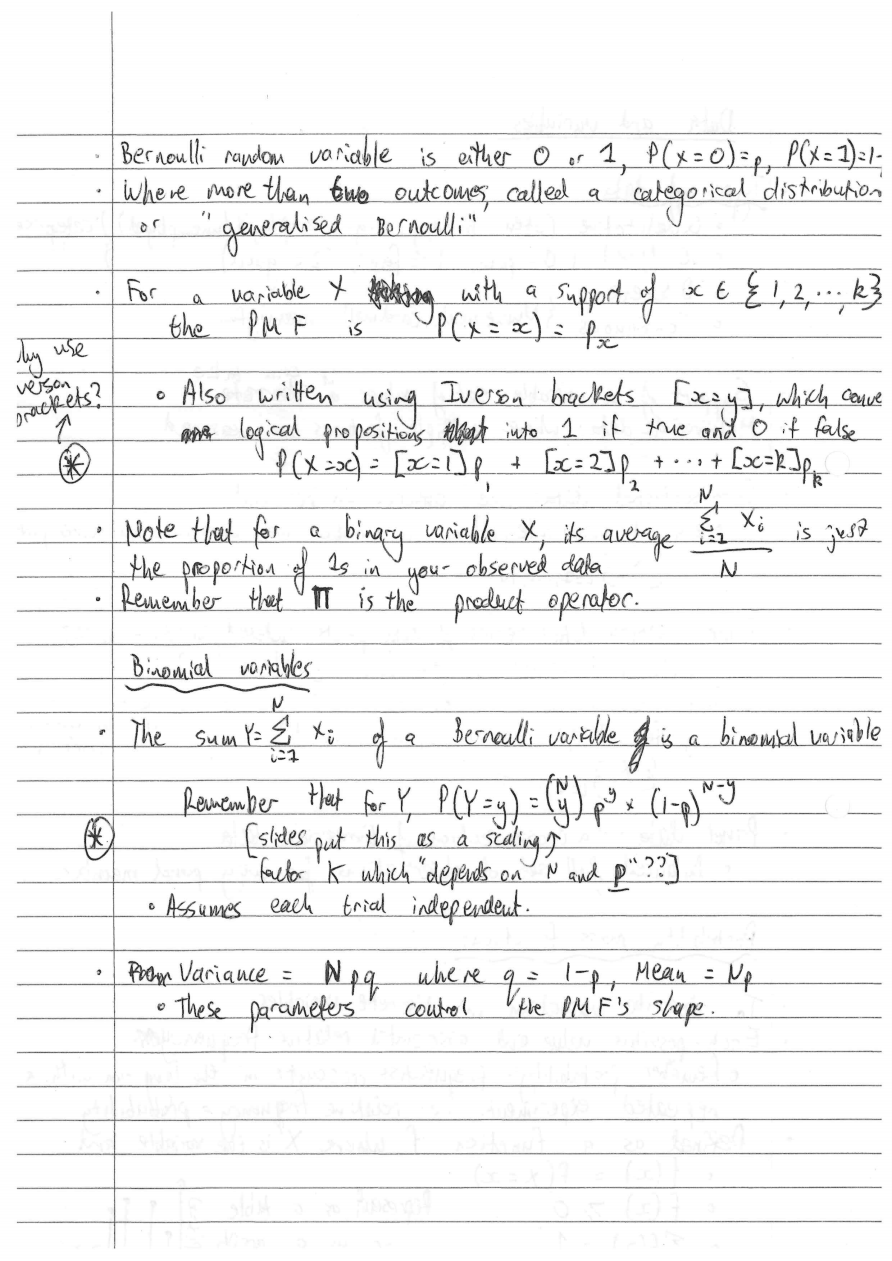 · Bernoulli random variable is either 0 or 1, P(X=0)=p, P(X=1)=1-
· Where more than two outcomes, called a categorical distribution
or "generalised Bernoulli"
· For a variable X with a support of x ∈ {1, 2, ..., k}
the PMF is P(X=x) = pₓ
use
verson
brackets?
↑
*
∘ Also written using Iverson brackets [x=y], which conve
logical propositions into 1 if true and 0 if false
P(X=x) = [x=1]p₁ + [x=2]p₂ + ... + [x=k]pₖ
· Note that for a binary variable X, its average (∑ᵢ₌₁ᴺ Xᵢ)/N is just
the proportion of 1s in your observed data
· Remember that Π is the product operator.
Binomial variables
· The sum Y= ∑ᵢ₌₁ᴺ Xᵢ of a Bernoulli variable is a binomial variable
Remember that for Y, P(Y=y) = (N y) p^y × (1-p)^(N-y)
* [slides put this as a scaling ↑
factor K which "depends on N and p"??]
∘ Assumes each trial independent.
· Variance = Npq where q = 1-p, Mean = Np
∘ These parameters control the PMF's shape.